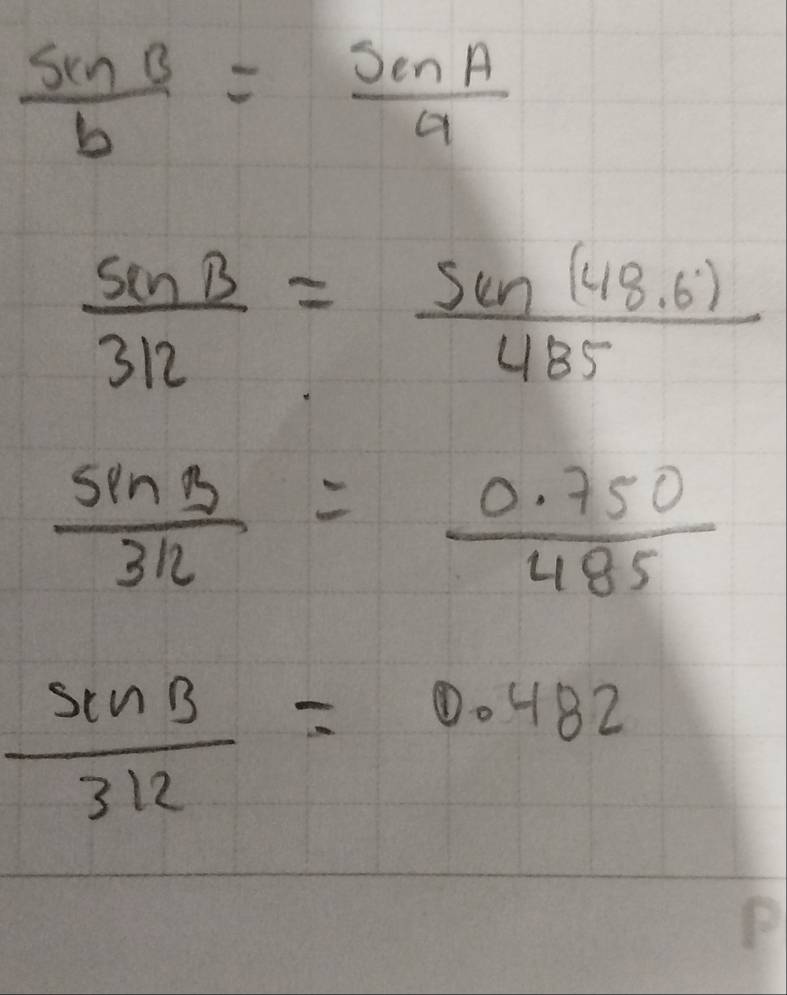 sen B / b = sen A / a
sen B / 312 = sen (48.6°) / 485
sen B / 312 = 0.750 / 485
sen B / 312 = 0.482
P